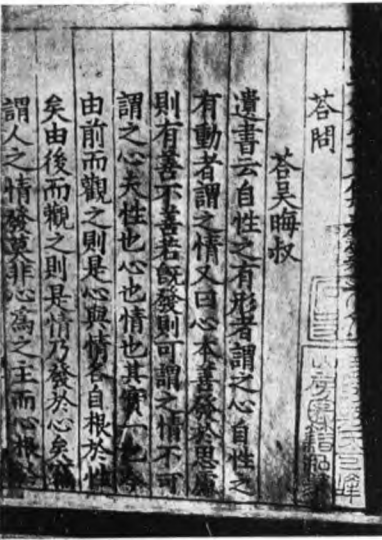 荅問
荅吳晦叔
遺書云自性之有形者謂之心自性之
有動者謂之情又曰心本善發於思慮
則有善不善若旣發則可謂之情不可
謂之心夫性也心也情也其實一也
由前而觀之則是心與情各自根於性
矣由後而觀之則是情乃發於心矣竊
謂人之情發莫非心爲之主而心根於